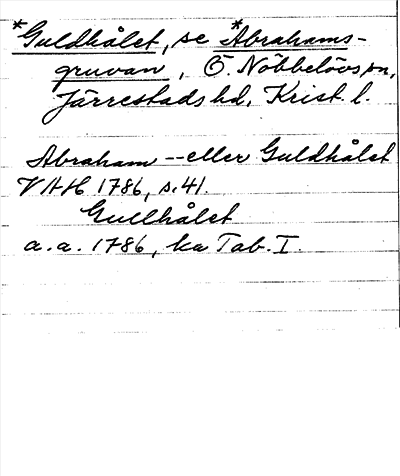 *Guldhålet, se *Abrahams-
gruvan, Ö. Nöbbelövs sn,
Järrestads hd, Krist. l.
Abraham -- eller Guldhålet
VAH 1786, s. 41.
Gullhålet
a.a. 1786, ka Tab. I.